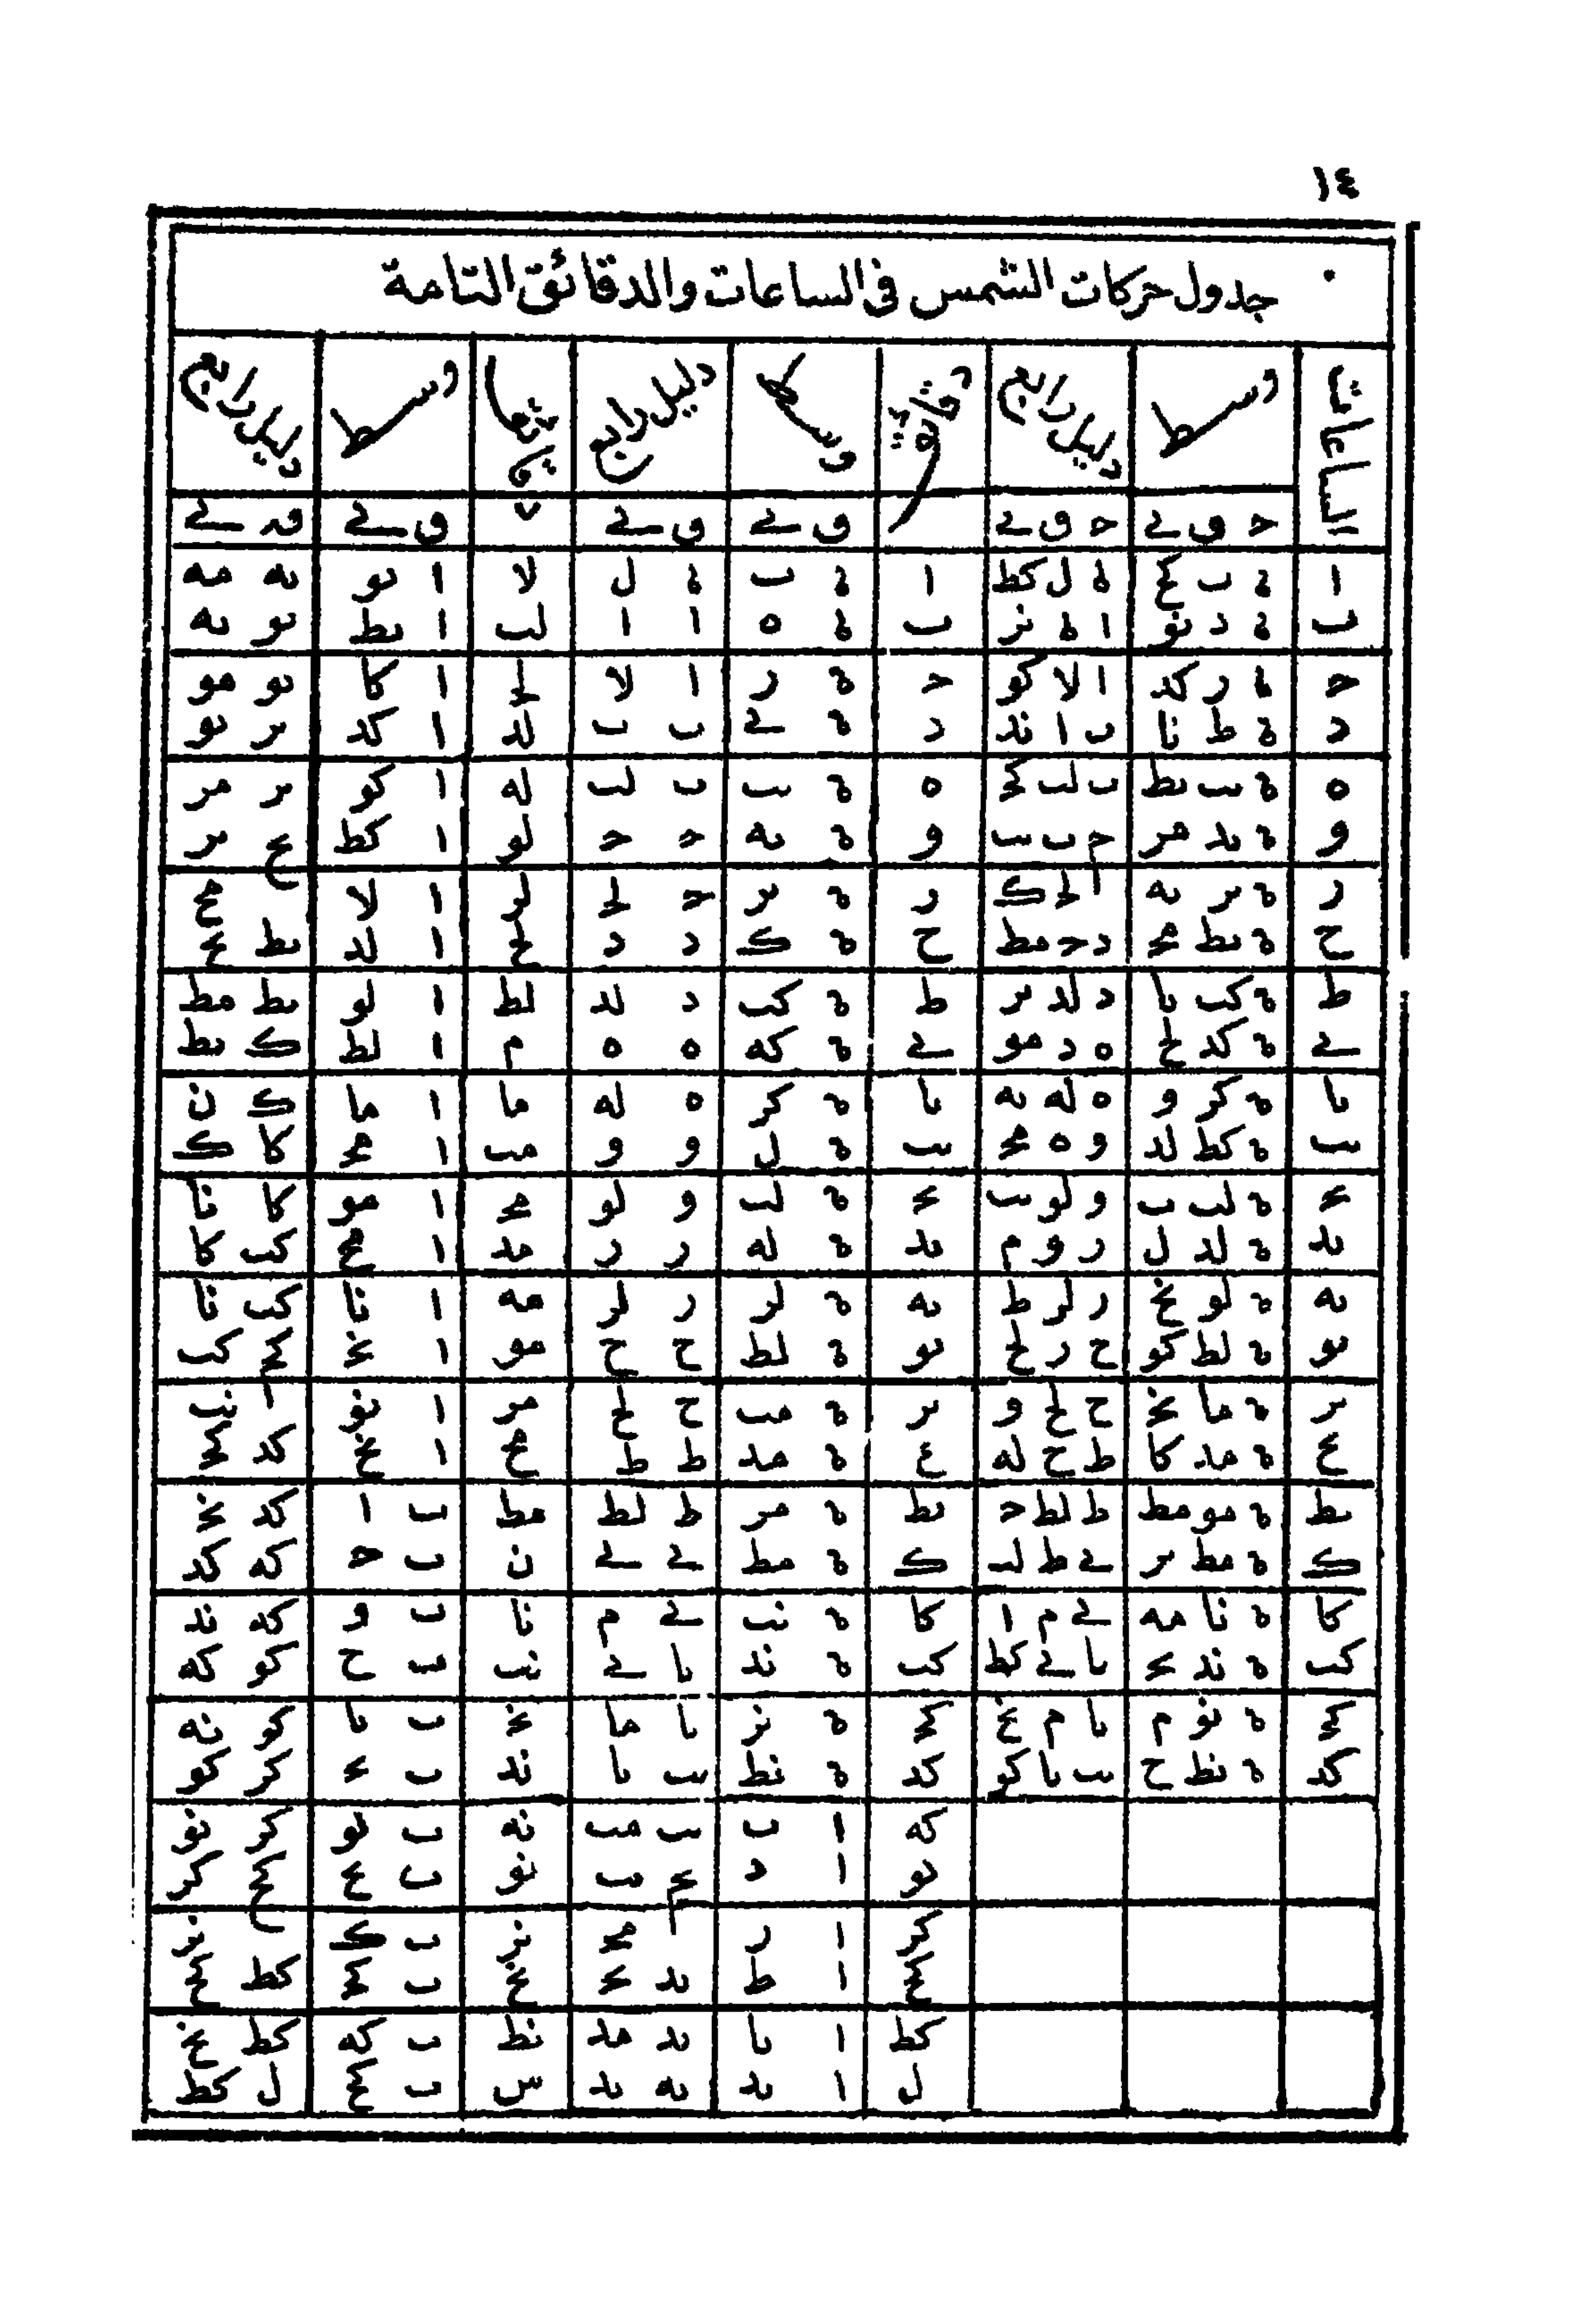 ١٤
جدول حركات الشمس في الساعات والدقائق التامة
الساعات وسط دليل رابع دقائق وسط دليل رابع دقائقها وسط دليل رابع
ج ق ني ج ق ني ق ني ق ني ق ني ق ني
ا ة ب كح ة ل كط ا ة ب ة ل لا ا يو يه مه
ب ة د نو ا ة نز ب ة ه ا ا لب ا يط يو يه
ج ة ر كد ا لا كو ج ة ر ا لا لج ا كا يو مو
د ة ط نا ب ا ند د ة ي ب ب لد ا كد ير يو
ه ة يب يط ب لب كج ه ة يب ب لب له ا كو ير مر
و ة يد مر ج ب يب و ة يه ج ج لو ا كط يح ير
ر ة ير يه لج ك ر ة ير ج لج لر ا لا مح
ح ة يط مج د ج مط ح ة ك د د لح ا لد يط يح
ط ة كب يا د لد ير ط ة كب د لد لط ا لو يط مط
ي ة كد لح ه د مو ي ة كه ه ه م ا لط ك يط
يا ة كر و ه له يه يا ة كر ه له ما ا ما ك ن
يب ة كط لد و ه مج يب ة ل و و مب ا مج كا ك
يج ة لب ب و لو يب يج ة لب و لو مج ا مو كا نا
يد ة لد ل ر و م يد ة له ر ر مد ا مح كب كا
يه ة لو نح ر لر ط يه ة لر ر لر مه ا نا كب نا
يو ة لط كو ح ر لح يو ة لط ح ح مو ا نج كج كب
ير ة ما نج ح لح و ير ة مب ح لح مر ا نو نب
يح ة مد كا ط ح له يح ة مد ط ط مح ا نح كد كج
يط ة مو مط ط لط ج يط ة مر ط لط مط ب ا كد نج
ك ة مط ير ي ط لب ك ة مط ي ي ن ب ج كه كد
كا ة نا مه ي م ا كا ة نب ي م نا ب و كه ند
كب ة ند يج يا ي كط كب ة ند يا ي نب ب ح كو كه
كج ة نو م يا م نح كج ة نز يا ما نج ب يا كو نه
كد ة نط ح يب يا كو كد ة نط يب يا ند ب يج كر كو
كه ا ب يب مب نه ب يو كر نو
كو ا د يج يب نو ب يح كح كر
كر ا ر مج نز ب ك نز
كح ا ط يد يج نح ب كج كط كح
كط ا يا يد مد نط ب كه كط نح
ل ا يد يه يد س ب كح ل كط